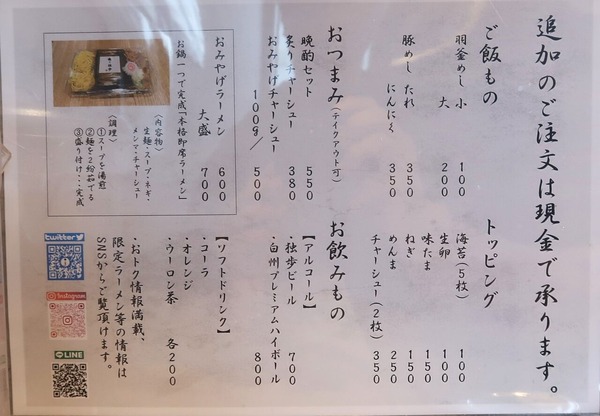 追加のご注文は現金で承ります。
ご飯もの
羽釜めし 小 100
大 200
豚めし たれ 350
にんにく 350
トッピング
海苔(5枚) 100
生卵 100
味たま 150
ねぎ 150
めんま 250
チャーシュー(2枚) 350
おつまみ(テイクアウト可)
晩酌セット 550
炙りチャーシュー 380
おみやげチャーシュー
100g/ 500
お飲みもの
【アルコール】
・独歩ビール 700
・白州プレミアムハイボール 800
おみやげラーメン 600
大盛 700
お鍋一つで完成「本格即席ラーメン」
〈内容物〉
生麺・スープ・ネギ・
メンマ・チャーシュー
〈調理〉
①スープを湯煎
②麺を2分茹でる
③盛り付け・・・完成
【ソフトドリンク】
・コーラ
・オレンジ
・ウーロン茶 各200
・おトク情報満載、
限定ラーメン等の情報は
SNSからご覧頂けます。
twitter
Instagram
LINE